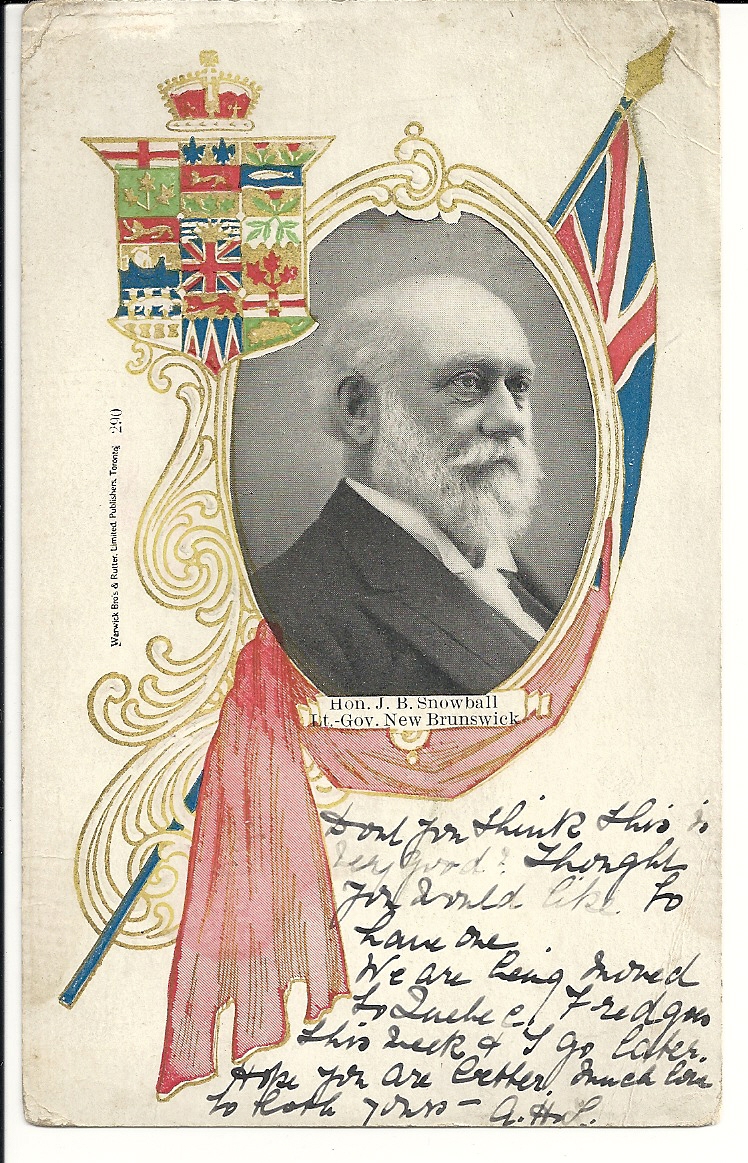 Warwick Bro's & Rutter, Limited, Publishers, Toronto 290
Hon. J. B. Snowball
Lt.-Gov. New Brunswick
Dont you think this is
very good? Thought
you would like to
have one
We are being moved
to Quebec, Fred goes
this week & I go later.
Hope you are better. much love
to both yours - A.H.L.